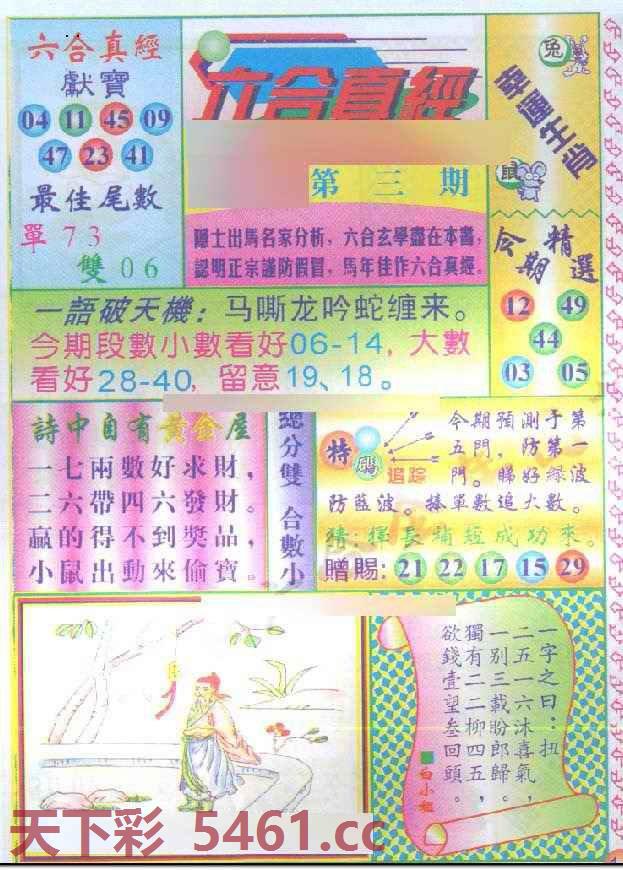 六合真經
獻寶
04 11 45 09
47 23 41
最佳尾數
單 7 3
雙 0 6
六合真經
第三期
隱士出馬名家分析，六合玄學盡在本書，
認明正宗謹防假冒，馬年佳作六合真經。
幸運生肖
兔
鼠
今期精選
12 49
44
03 05
一語破天機：马嘶龙吟蛇缠来。
今期段數小數看好06-14，大數
看好28-40，留意19、18。
詩中自有黃金屋
一七兩數好求財，
二六帶四六發財。
贏的得不到獎品，
小鼠出動來偷寶。
總分雙 合數小
特碼
追踪
今期預測于第
五門，防第一
門。睇好綠波
防藍波。捧單數追大數。
猜：揮長端短成功來。
贈賜：21 22 17 15 29
一字之曰：扭
二五一六沐喜氣，
一别三載盼郎歸。
獨有二二柳四五，
欲錢壹望叁回頭。
白小姐
天下彩 5461.cc